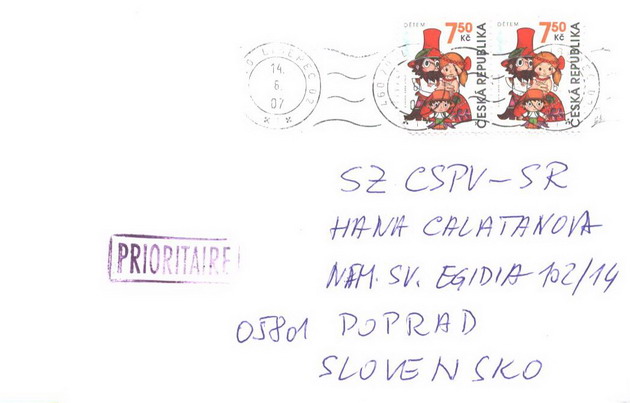 DĚTEM 7,50 Kč ČESKÁ REPUBLIKA
DĚTEM 7,50 Kč ČESKÁ REPUBLIKA
460 LIBEREC 02
14.
6.
07
SZ CSPV-SR
HANA CALATANOVA
PRIORITAIRE
NÁM. SV. EGIDIA 102/14
05801 POPRAD
SLOVENSKO